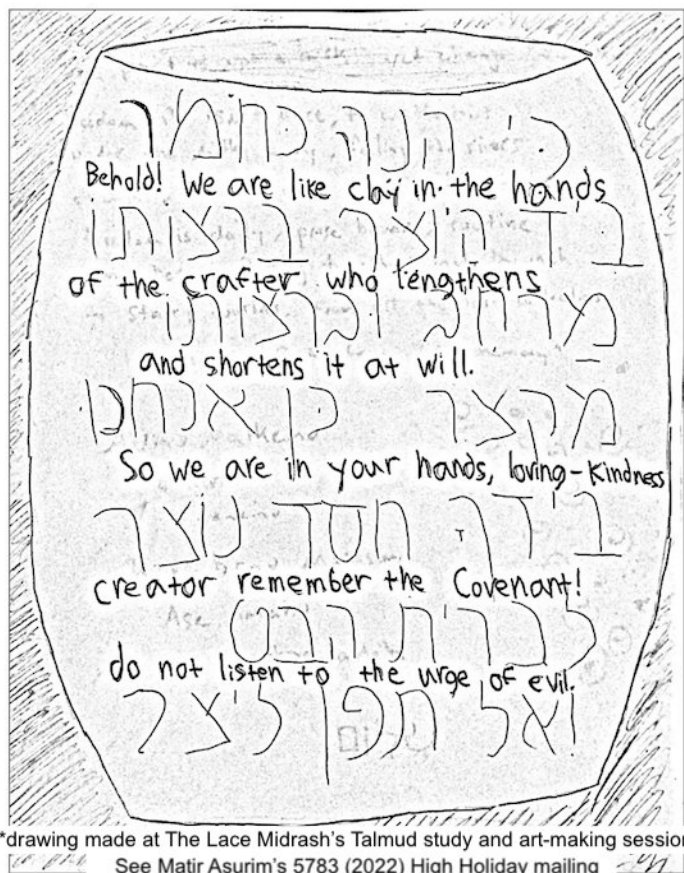 כי הנה כחמר
Behold! We are like clay in the hands
ביד היוצר ברצותו
of the crafter who lengthens
מרחיב וברצותו
and shortens it at will.
מקצר כן אנחנו
So we are in your hands, loving-kindness
בידך חסד נוצר
creator remember the Covenant!
לברית הבט
do not listen to the urge of evil.
ואל תפן ליצר
*drawing made at The Lace Midrash's Talmud study and art-making session
See Matir Asurim's 5783 (2022) High Holiday mailing